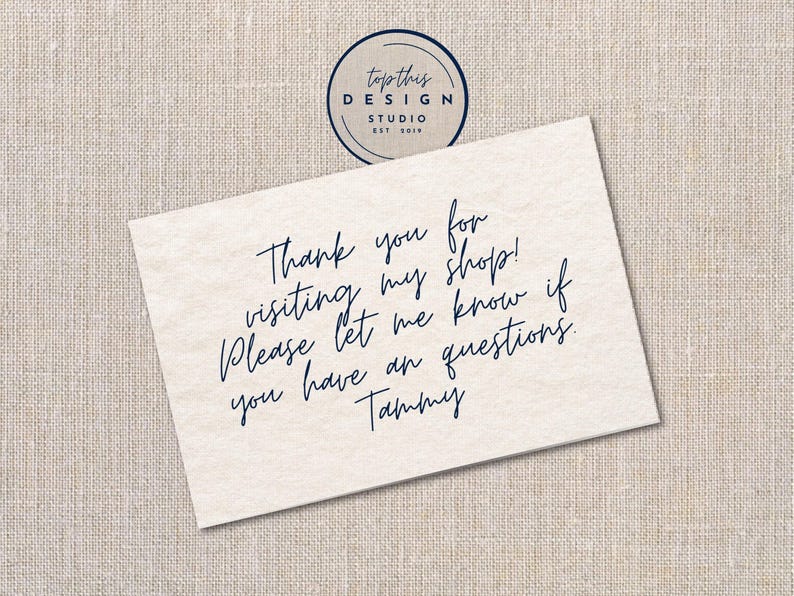 topthis
DESIGN
STUDIO
EST 2019
Thank you for
visiting my shop!
Please let me know if
you have an questions.
Tammy